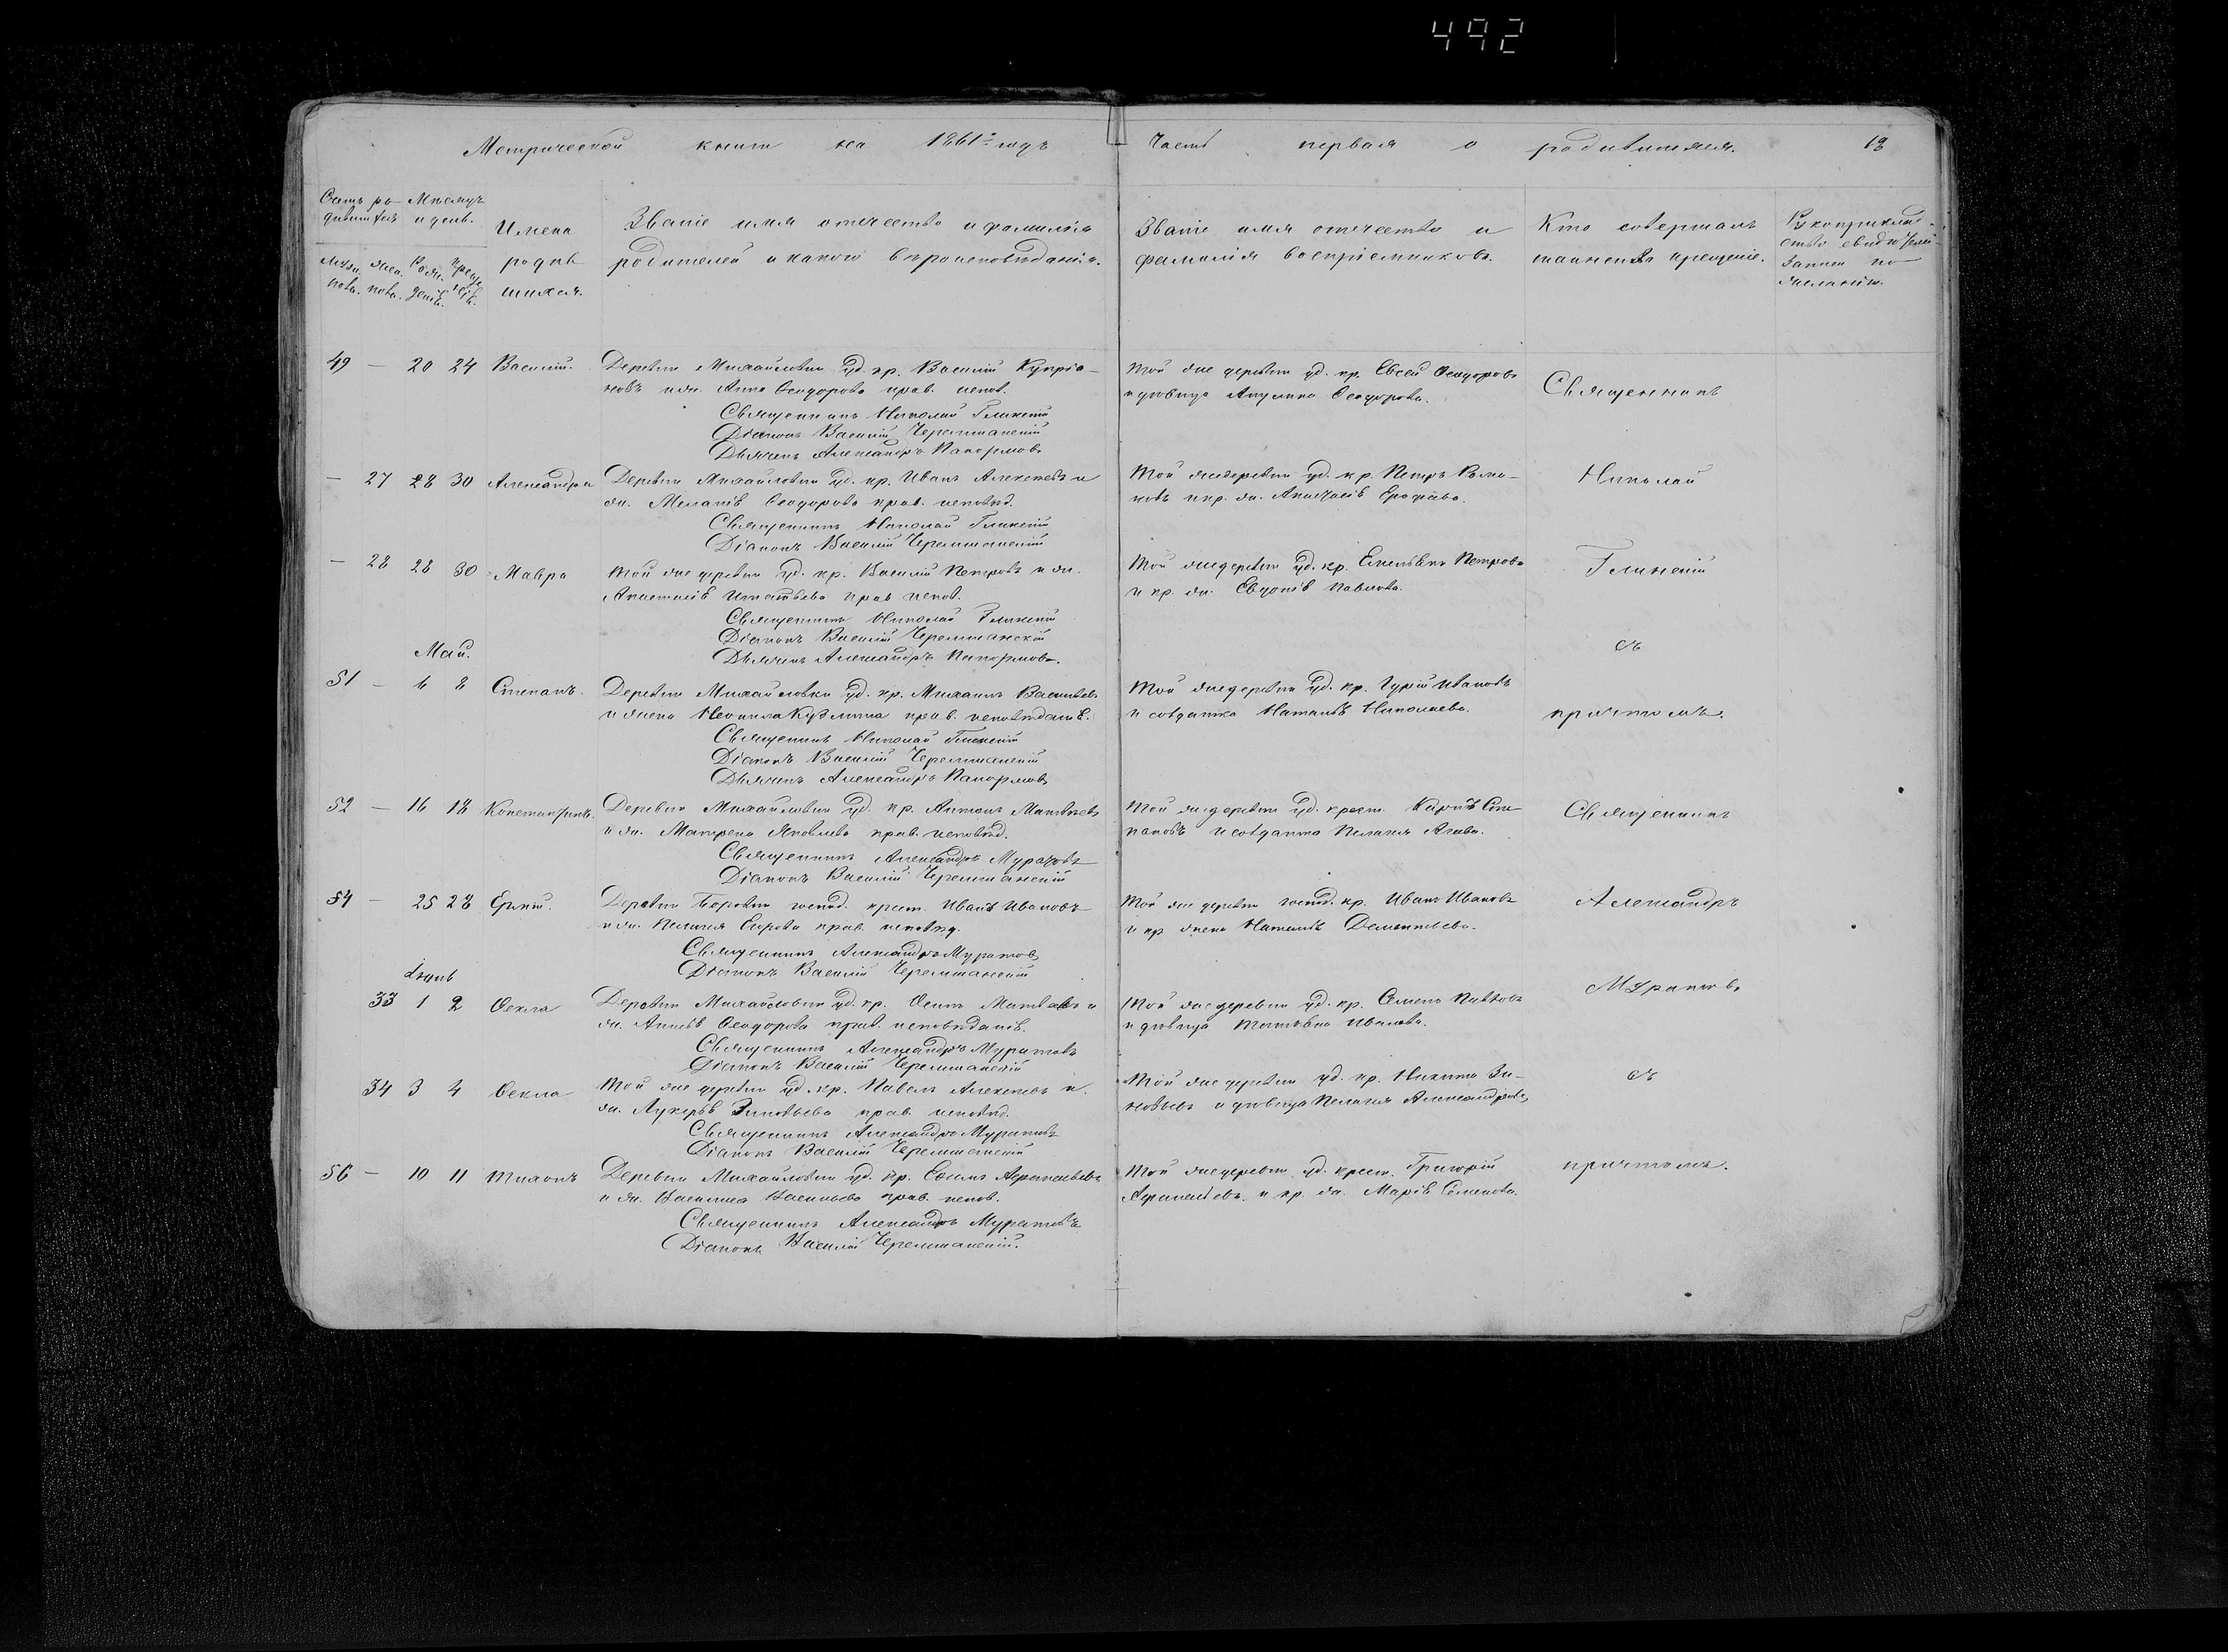 492
Метрической книги на 1861й годъ
Часть первая о родившихся.
13
Счетъ ро- Мѣсяцъ
дившихся и день.
Имена
родив
шихся.
муж. жен. Рож. Крещ.
пола. пола. денія. нія.
Званіе имя отчество и фамилія
родителей и какого вѣроисповѣданія.
Званіе имя отчество и
фамилія воспріемниковъ.
Кто совершалъ
таинство крещенія.
Рукоприклад-
ство свидѣтелей
записи по
желанію.
49 — 20 24 Василій.
Деревни Михайловки уд. кр. Василій Купріа-
новъ и ж. Анна Ѳеодорова прав. испов.
Священникъ Николай Глинскій
Діаконъ Василій Черемшанскій
Дьячекъ Александръ Панормовъ
Той же деревни уд. кр. Евсей Ѳеодоровъ
и дѣвица Акулина Ѳеодорова.
Священникъ
— 27 28 30 Александра
Деревни Михайловки уд. кр. Иванъ Алексѣевъ и
ж. Меланія Ѳеодорова прав. исповѣд.
Священникъ Николай Глинскій
Діаконъ Василій Черемшанскій
Той же деревни уд. кр. Петръ Рома-
новъ и кр. ж. Анастасія
Николай
— 28 28 30 Мавра
Той же деревни уд. кр. Василій Петровъ и ж.
Анастасія Игнатьева прав испов.
Священникъ Николай Глинскій
Діаконъ Василій Черемшанскій
Дьячекъ Александръ Панормовъ.
Той же деревни уд. кр. Емельянъ Петровъ
и кр. ж. Евдокія Павлова.
Глинскій
съ
Май.
51 — 6 8 Степанъ.
Деревни Михайловки уд. кр. Михаилъ Васильевъ
и жена Неонила Кузьмина прав. исповѣданія.
Священникъ Николай Глинскій
Діаконъ Василій Черемшанскій
Дьячекъ Александръ Панормовъ
Той же деревни уд. кр. Гурій Ивановъ
и солдатка Наталья Николаева.
причтомъ.
52 — 16 18 Константинъ.
Деревни Михайловки уд. кр. Антонъ Матвѣевъ
и ж. Матрена Яковлева прав. исповѣд.
Священникъ Александръ Муратовъ
Діаконъ Василій Черемшанскій
Той же деревни уд. крест. Карпъ Сте-
пановъ и солдатка Пелагея
Священникъ
54 — 25 28
Деревни госуд. крест. Иванъ Ивановъ
и ж. Пелагея прав. исповѣд.
Священникъ Александръ Муратовъ
Діаконъ Василій Черемшанскій
Той же деревни госуд. кр. Иванъ Ивановъ
и кр жена Наталья Дементьева.
Александръ
Іюнь
33 1 2 Ѳекла
Деревни Михайловки уд. кр. Осипъ Матвѣевъ и
ж. Анна Ѳеодорова прав. исповѣданія.
Священникъ Александръ Муратовъ
Діаконъ Василій Черемшанскій
Той же деревни уд. кр. Семенъ Павловъ
и дѣвица Татьяна Иванова.
Муратовъ
34 3 4 Ѳекла
Той же деревни уд. кр. Павелъ Алексѣевъ и
ж. Лукерья Зиновьева прав. исповѣд.
Священникъ Александръ Муратовъ
Діаконъ Василій Черемшанскій
Той же деревни уд. кр. Никита Зи-
новьевъ и дѣвица Пелагея Александрова
съ
56 — 10 11 Тихонъ
Деревни Михайловки уд. кр. Ефимъ Афанасьевъ
и ж. Василиса Васильева прав. испов.
Священникъ Александръ Муратовъ
Діаконъ Василій Черемшанскій.
Той же деревни уд. крест. Григорій
Афанасьевъ. и кр. ж. Марія Семенова.
причтомъ.